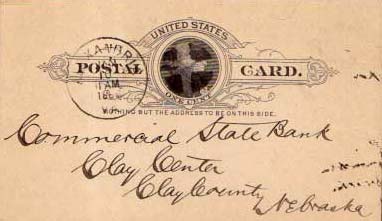 UNITED STATES
POSTAL CARD.
ONE CENT
NOTHING BUT THE ADDRESS TO BE ON THIS SIDE.
11 AM
Commercial State Bank
Clay Center
Clay County
Nebraska